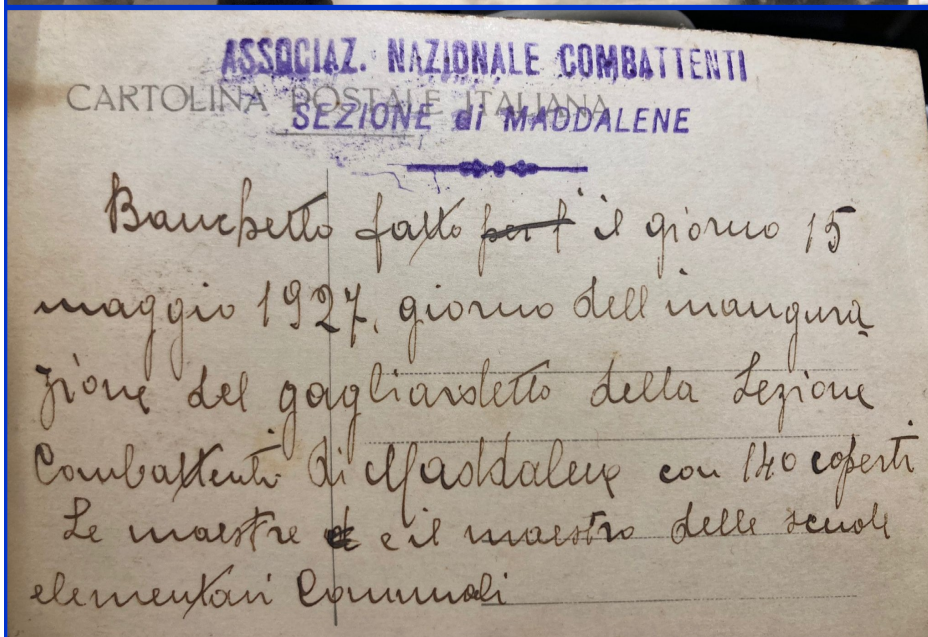 ASSOCIAZ. NAZIONALE COMBATTENTI
CARTOLINA POSTALE ITALIANA
SEZIONE di MADDALENE
Banchetto fatto per l' il giorno 15
maggio 1927, giorno dell inaugura
zione del gagliardetto della Sezione
Combattenti di Maddalene con 140 coperti
Le maestre e il maestro delle scuole
elementari Comunali